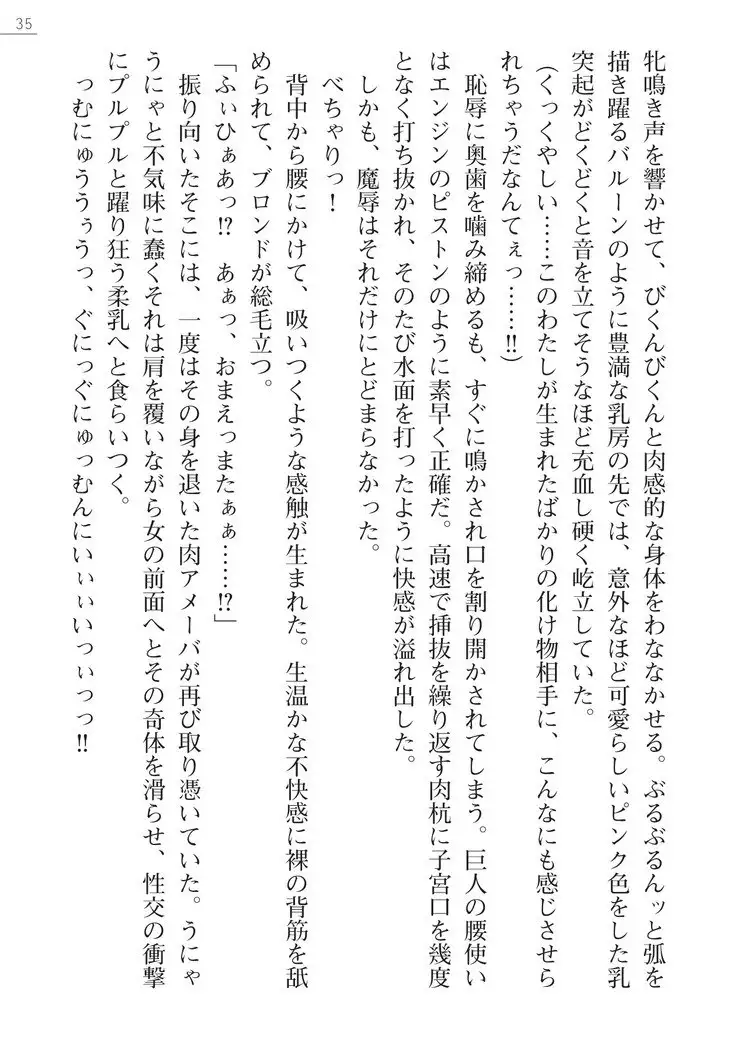 35
牝鳴き声を響かせて、びくんびくんと肉感的な身体をわななかせる。ぶるぶるんッと弧を
描き躍るバルーンのように豊満な乳房の先では、意外なほど可愛らしいピンク色をした乳
突起がどくどくと音を立てそうなほど充血し硬く屹立していた。
(くっくやしい……このわたしが生まれたばかりの化け物相手に、こんなにも感じさせら
れちゃうだなんてぇっ……‼)
恥辱に奥歯を噛み締めるも、すぐに鳴かされ口を割り開かされてしまう。巨人の腰使い
はエンジンのピストンのように素早く正確だ。高速で挿抜を繰り返す肉杭に子宮口を幾度
となく打ち抜かれ、そのたび水面を打ったように快感が溢れ出した。
しかも、魔辱はそれだけにとどまらなかった。
べちゃりっ！
背中から腰にかけて、吸いつくような感触が生まれた。生温かな不快感に裸の背筋を舐
められて、ブロンドが総毛立つ。
「ふぃひぁあっ⁉　あぁっ、おまえっまたぁぁ……⁉」
振り向いたそこには、一度はその身を退いた肉アメーバが再び取り憑いていた。うにゃ
うにゃと不気味に蠢くそれは肩を覆いながら女の前面へとその奇体を滑らせ、性交の衝撃
にプルプルと躍り狂う柔乳へと食らいつく。
っむにゅううぅうっ、ぐにっぐにゅっむんにいぃぃいっぃっっ‼